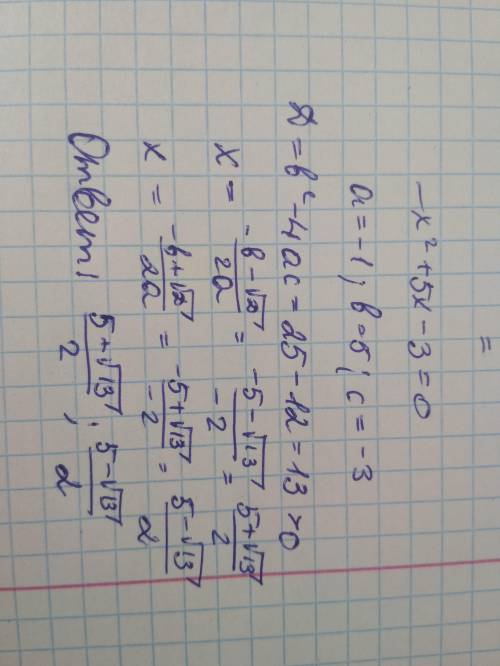 =
-x² + 5x - 3 = 0
a = -1; b = 5; c = -3
D = b² - 4ac = 25 - 12 = 13 > 0
x = (-b - √D)/2a = (-5 - √13)/-2 = (5 + √13)/2
x = (-b + √D)/2a = (-5 + √13)/-2 = (5 - √13)/2
Ответ: (5 + √13)/2; (5 - √13)/2